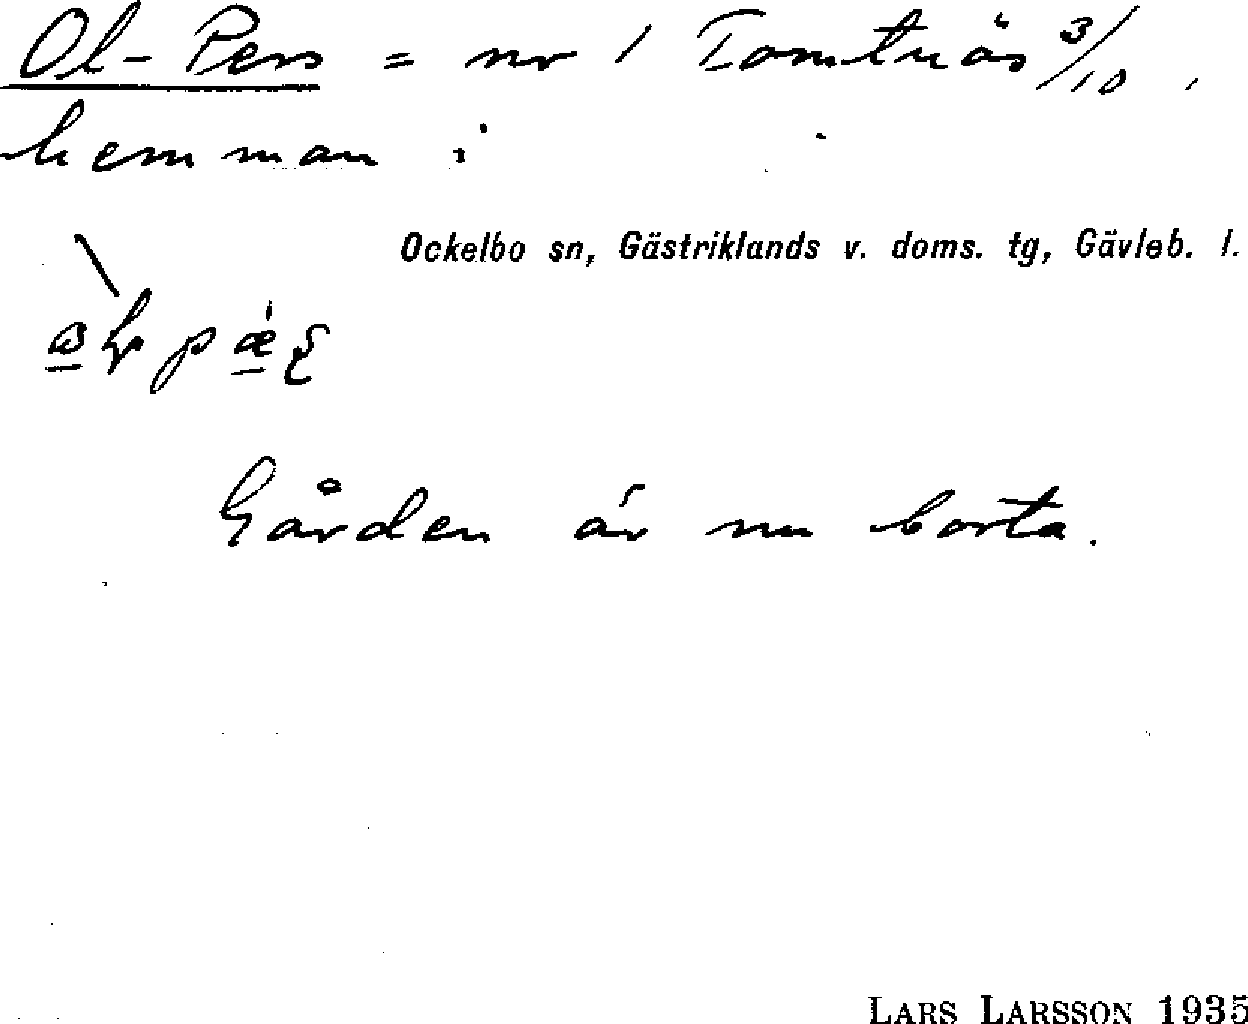 Ol-Pers = nr 1 Tomtnäs 3/10,
hemman i
Ockelbo sn, Gästriklands v. doms. tg, Gävleb. l.
Gården är nu borta.
LARS LARSSON 1935